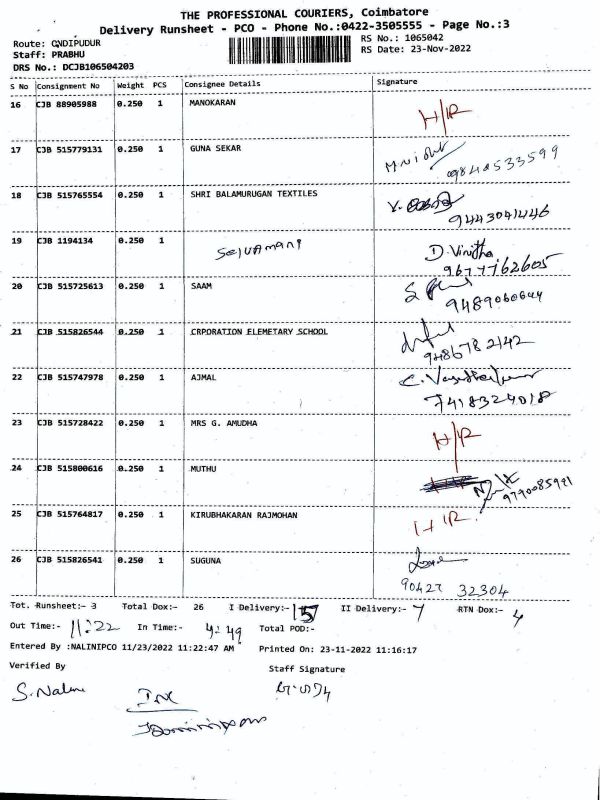 THE PROFESSIONAL COURIERS, Coimbatore
Delivery Runsheet - PCO - Phone No.:0422-3505555 - Page No.:3
Route: ONDIPUDUR RS No.: 1065042
Staff: PRABHU RS Date: 23-Nov-2022
DRS No.: DCJB106504203
S No Consignment No Weight PCS Consignee Details Signature
16 CJB 88905988 0.250 1 MANOKARAN H/R
17 CJB 515779131 0.250 1 GUNA SEKAR
9840533599
18 CJB 515765554 0.250 1 SHRI BALAMURUGAN TEXTILES
9443041446
19 CJB 1194134 0.250 1 Selvamani D. Vinitha
9677762605
20 CJB 515725613 0.250 1 SAAM
9489060644
21 CJB 515826544 0.250 1 CRPORATION ELEMETARY SCHOOL
9486782142
22 CJB 515747978 0.250 1 AJMAL
7418324018
23 CJB 515728422 0.250 1 MRS G. AMUDHA H/R
24 CJB 515800616 0.250 1 MUTHU
9790085991
25 CJB 515764817 0.250 1 KIRUBHAKARAN RAJMOHAN H/R
26 CJB 515826541 0.250 1 SUGUNA
90427 32304
Tot. Runsheet:- 3 Total Dox:- 26 I Delivery:- 15 II Delivery:- 7 RTN Dox:- 4
Out Time:- 11:22 In Time:- 4:49 Total POD:-
Entered By :NALINIPCO 11/23/2022 11:22:47 AM Printed On: 23-11-2022 11:16:17
Verified By Staff Signature
S. Nalini